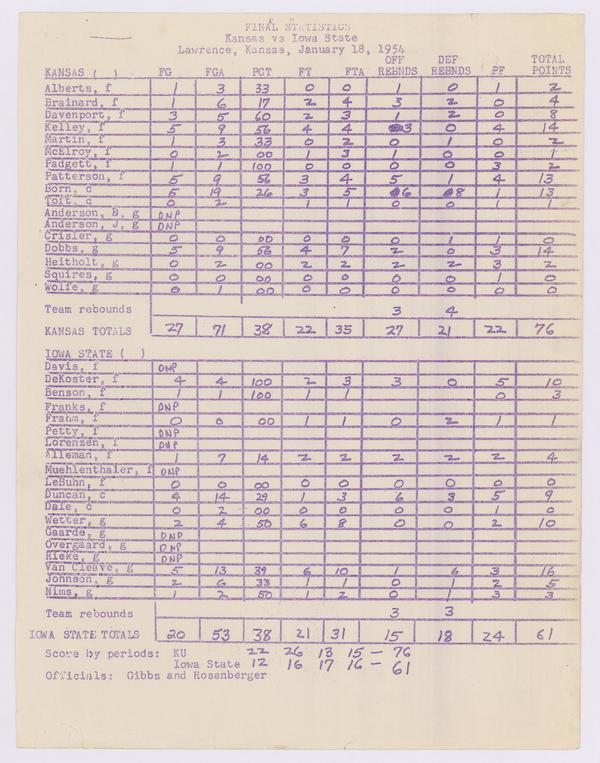 FINAL STATISTICS
Kansas vs Iowa State
Lawrence, Kansas, January 18, 1954
KANSAS ( ) FG FGA PCT FT FTA OFF REBNDS DEF REBNDS PF TOTAL POINTS
Alberts, f 1 3 33 0 0 1 0 1 2
Brainard, f 1 6 17 2 4 3 2 0 4
Davenport, f 3 5 60 2 3 1 2 0 8
Kelley, f 5 9 56 4 4 3 0 4 14
Martin, f 1 3 33 0 2 0 1 0 2
McElroy, f 0 2 00 1 3 1 0 0 1
Padgett, f 1 1 100 0 0 0 0 3 2
Patterson, f 5 9 56 3 4 5 1 4 13
Born, c 5 19 26 3 5 6 8 1 13
Toft, c 0 2 1 1 0 0 1 1
Anderson, B, g DNP
Anderson, J, g DNP
Crisler, g 0 0 00 0 0 0 1 1 0
Dobbs, g 5 9 56 4 7 2 0 3 14
Heitholt, g 0 2 00 2 2 2 2 3 2
Squires, g 0 0 00 0 0 0 0 1 0
Wolfe, g 0 1 00 0 0 0 0 0 0
Team rebounds 3 4
KANSAS TOTALS 27 71 38 22 35 27 21 22 76
IOWA STATE ( )
Davis, f DNP
DeKoster, f 4 4 100 2 3 3 0 5 10
Benson, f 1 1 100 1 1 0 3
Franks, f DNP
Frahm, f 0 0 00 1 1 0 2 1 1
Petty, f DNP
Lorenzen, f DNP
Alleman, f 1 7 14 2 2 2 2 2 4
Muehlenthaler, f DNP
LeBuhn, f 0 0 00 0 0 0 0 0 0
Duncan, c 4 14 29 1 3 6 3 5 9
Dale, c 0 2 00 0 0 0 0 1 0
Wetter, g 2 4 50 6 8 0 0 2 10
Gaarde, g DNP
Overgaard, g DNP
Rieke, g DNP
Van Cleave, g 5 13 39 6 10 1 6 3 16
Johnson, g 2 6 33 1 1 0 1 2 5
Nims, g 1 2 50 1 2 0 1 3 3
Team rebounds 3 3
IOWA STATE TOTALS 20 53 38 21 31 15 18 24 61
Score by periods: KU 22 26 13 15 - 76
Iowa State 12 16 17 16 - 61
Officials: Gibbs and Rosenberger